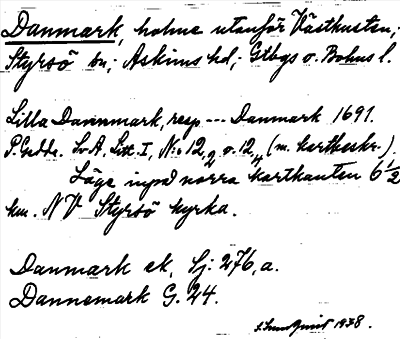 Danmark, holme utanför Västkusten,
Styrsö sn, Askims hd, Gtbgs o. Bohus l.
Lilla Danmark, resp --- Danmark 1691.
P. Gedda. Lv. A. Litt. I, No 12,2 o. 12,4 (m. kartbeskr.).
Läge inpå norra kartkanten 6 1/2
km. NV Styrsö kyrka.
Danmark ek. Sj. 276, a.
Dannemark G. 24.
1938.